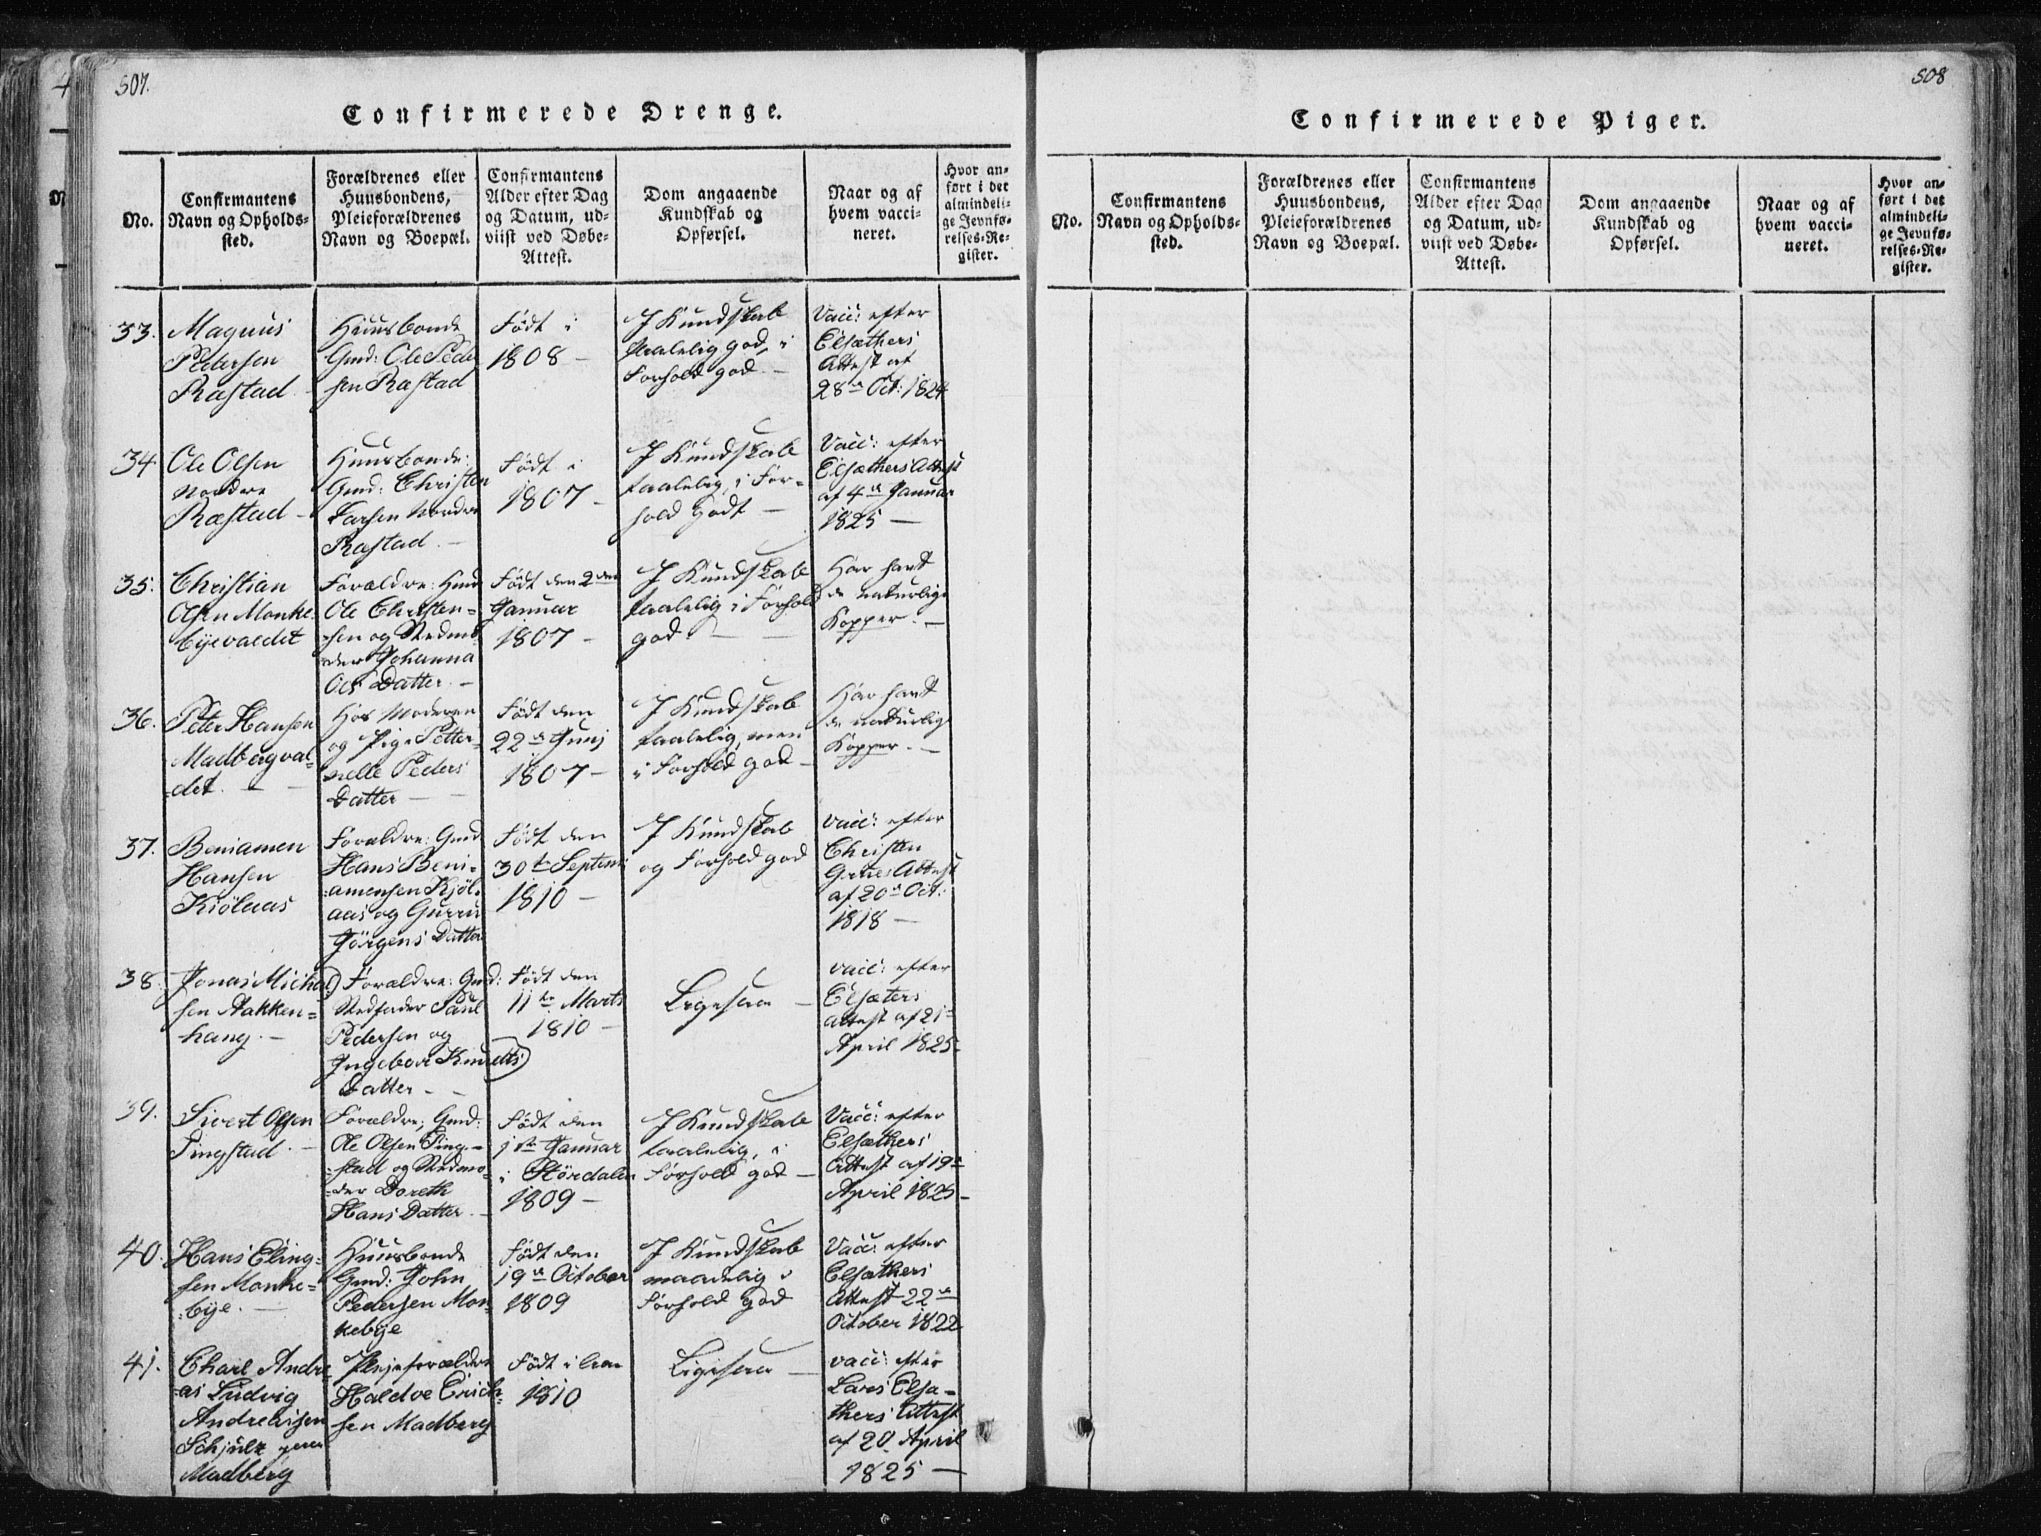 507.
Confirmerede Drenge.
No.
Confirmantens
Navn og Opholds-
sted.
Forældrenes eller
Huusbondens,
Pleieforældrenes
Navn og Boepæl.
Confirmantens
Alder efter Dag
og Datum, ud-
viist ved Døbe-
Attest.
Dom angaaende
Kundskab og
Opførsel.
Naar og af
hvem vacci-
neret.
Hvor an-
ført i det
almindeli-
ge Jevnfø-
relses-Re-
gister.
33.
Magnus
Pedersen
Ræstad
Huusbonde
Gmd: Ole Peder
sen Ræstad
Født i
1808 –
I Kundskab
taalelig god, i
Forhold god. –
Vacc: efter
Elsæthers
Attest af
28de Oct: 1824
34
Ole Olsen
Nordre
Ræstad –
Huusbonde:
Gmd: Christen
Larsen Nordre
Ræstad. –
Født i
1807 –
I Kundskab
taalelig, i For-
hold godt –
Vacc: efter
Elsæthers Attest
af 4de Januar
1825 –
35.
Christian
Olsen Monke-
byevaldet
Forældre: Hmd
Ole Christen-
sen og Stedmo
der Johanna
Ols Datter. –
Født den 2den
Januar
1807 –
I Kundskab
taalelig i Forhold
god. –
Har havt
de naturlige
Kopper. –
36.
Peter Hansen
Madbergval-
det. –
Hos Moderen
og Pige Petter-
nelle Peders
Datter –
Født den
22de Junj
1807 –
I Kundskab
taalelig, men
i Forhold god –
Har havt
de naturlige
Kopper. –
37.
Beniamen
Hansen
Kiølaas
Forældre: Gmd
Hans Beni-
amensen Kjøl-
aas og Gurru
Jørgens Datter
Født den
30te Septem:
1810 –
I Kundskab
og Forhold god
Vacc: efter
Christen
Grues Attest
af 20de Oct:
1818 –
38.
Jonas Michel
sen Aakken-
hang. –
Forældre: Gmd:
Stedfader Paul
Pedersen og
Ingebor Knudts
Datter –
Født den
11te Marts
1810 –
Ligesaa –
Vacc: efter
Elsæters
Attest af 21de
April 1825.
39.
Sivert Olsen
Tingstad. –
Forældre; Gmd:
Ole Olsen Ting-
stad og Stedmo-
der Doreth
Hans Datter. –
Født den
1ste Januar
i Størdalen
1809 –
I Kundskab
taalelig, i
Forhold god –
Vacc: efter
Elsæthers
Attest af 19de
April 1825 –
40.
Hans Eling-
sen Monke-
bye. –
Huusbonde
Gmd: John
Pedersen Mon-
kebye
Født den
19de October
1809
I Kundskab
maadelig i
Forhold god
Vacc: efter
Elsæthers
Attest 22de
October 1822
41.
Charl Andre
as Ludvig
Andreasen
Schjulz
Madberg
Plejeforældre
Haldve Erich-
sen Madberg
Født i
1810
Ligesaa –
Vacc: efter
Lars Elsæ-
thers Attest
af 20 April
1825 –
508
Confirmerede Piger.
No.
Confirmantens
Navn og Opholds-
sted.
Forældrenes eller
Huusbondens,
Pleieforældrenes
Navn og Boepæl.
Confirmantens
Alder efter Dag
og Datum, ud-
viist ved Døbe-
Attest.
Dom angaaende
Kundskab og
Opførsel.
Naar og af
hvem vacci-
neret.
Hvor an-
ført i det
almindeli-
ge Jevnfø-
relses-Re-
gister.